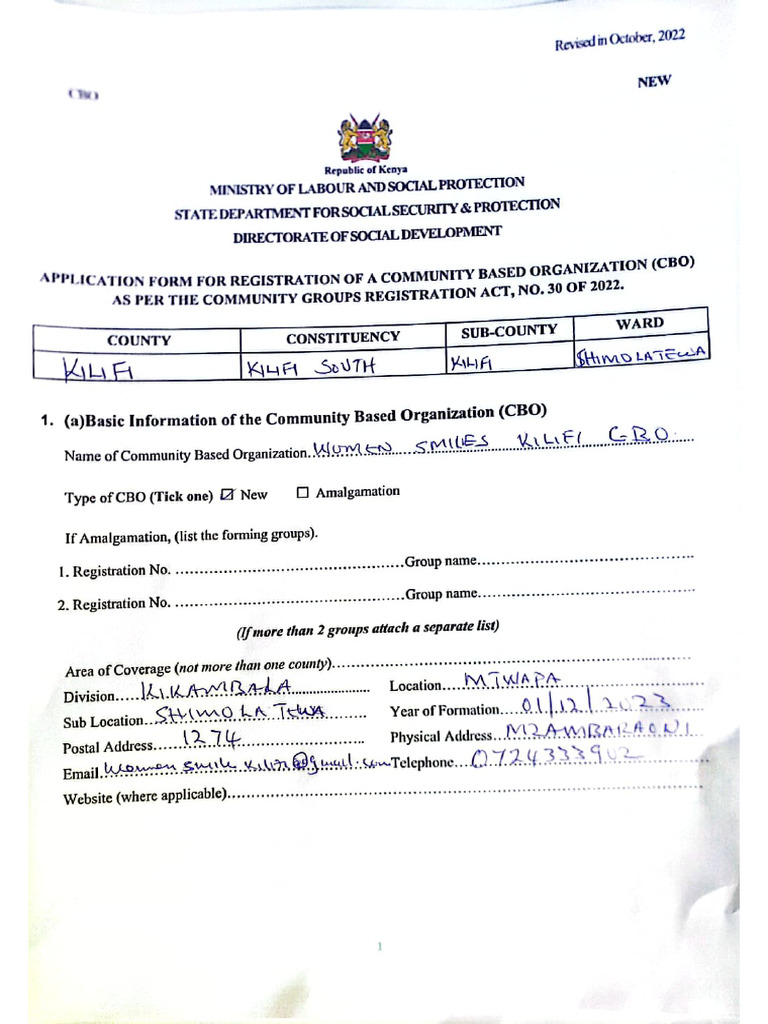 Revised in October, 2022
CBO
NEW
Republic of Kenya
MINISTRY OF LABOUR AND SOCIAL PROTECTION
STATE DEPARTMENT FOR SOCIAL SECURITY & PROTECTION
DIRECTORATE OF SOCIAL DEVELOPMENT
APPLICATION FORM FOR REGISTRATION OF A COMMUNITY BASED ORGANIZATION (CBO)
AS PER THE COMMUNITY GROUPS REGISTRATION ACT, NO. 30 OF 2022.
COUNTY CONSTITUENCY SUB-COUNTY WARD
KILIFI KILIFI SOUTH KILIFI SHIMOLATEWA
1. (a)Basic Information of the Community Based Organization (CBO)
Name of Community Based Organization. WOMEN SMILES KILIFI CBO.
Type of CBO (Tick one) ☑ New ☐ Amalgamation
If Amalgamation, (list the forming groups).
1. Registration No. ……………………………………Group name……………………………………
2. Registration No. ……………………………………Group name……………………………………
(If more than 2 groups attach a separate list)
Area of Coverage (not more than one county)……………………………………………………
Division......KIKAMBALA.................. Location......MTWAPA..................
Sub Location...SHIMO LA TEWA......... Year of Formation....01/12/2023
Postal Address......1274.................. Physical Address...MZAMBARAONI...
Email.Women smile kilifi@gmail.com Telephone....0724333902.........
Website (where applicable)……………………………………………………………………
1